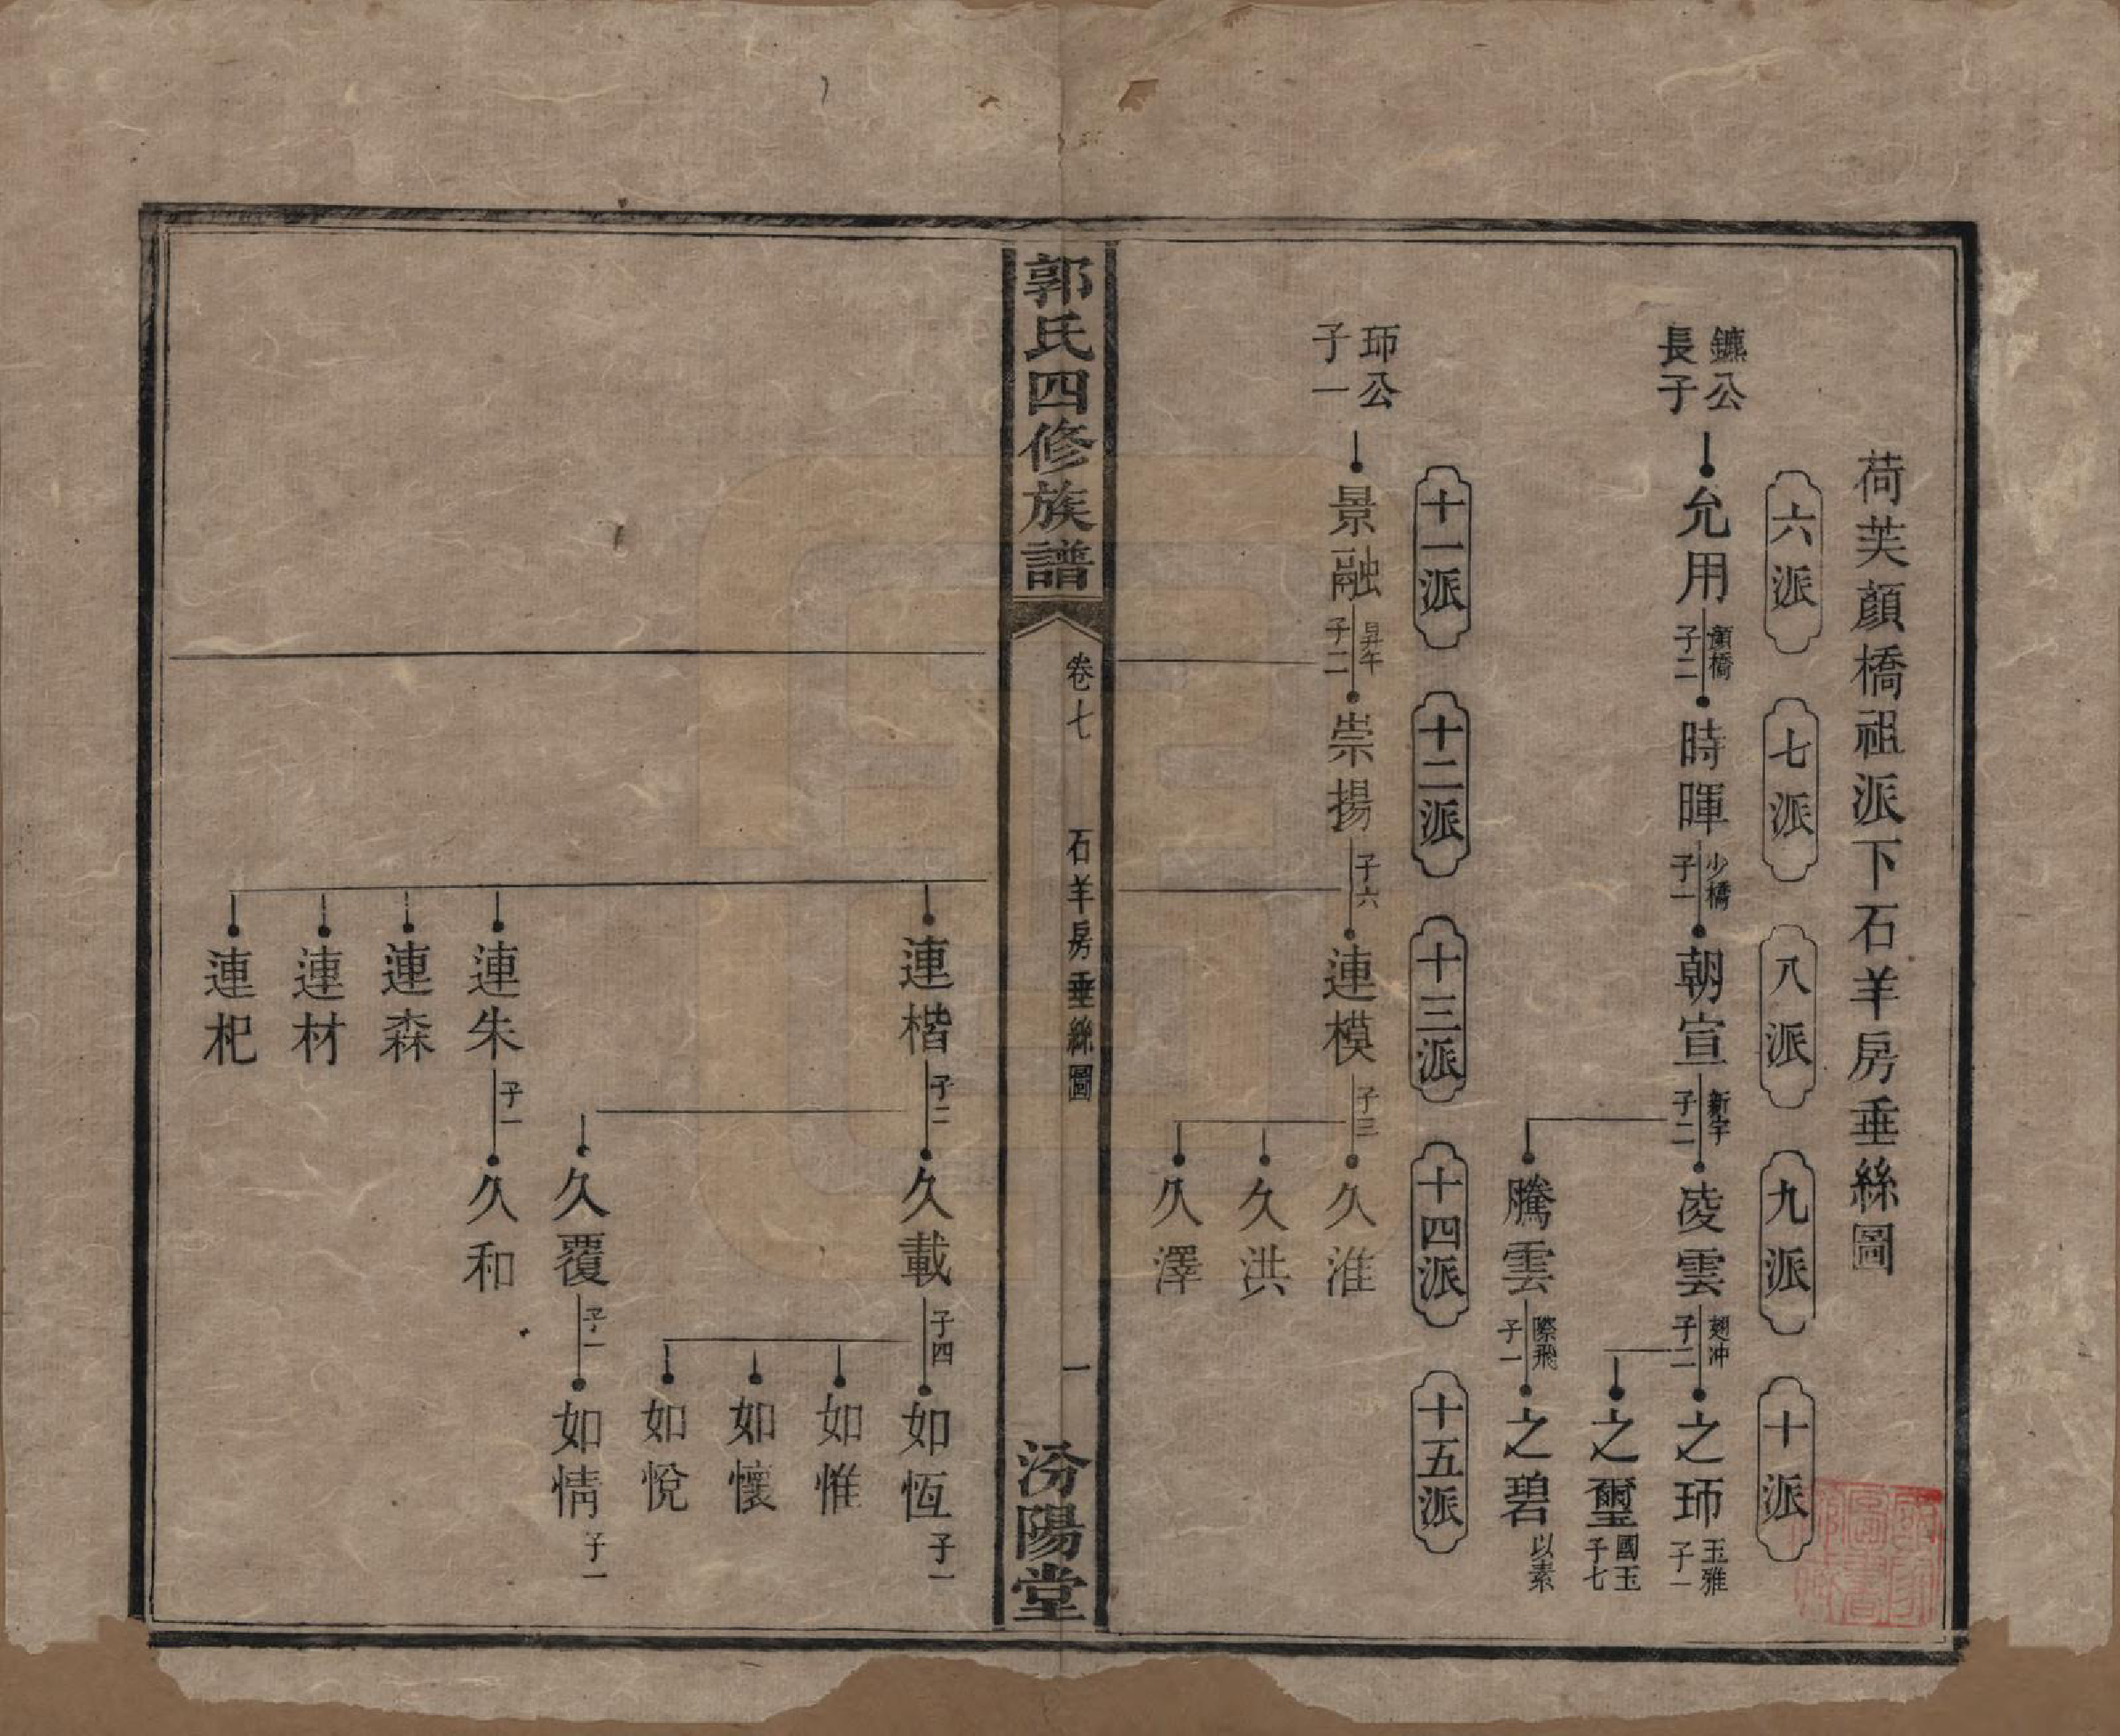 荷芙顏橋祖派下石羊房垂絲圖
六派
七派
八派
九派
十派
鑣公
長子
允用
顏橋
子二
時暉
少橋
子一
朝宣
新宇
子二
凌雲
翅冲
子二
之珶
玉雅
子一
之璽
國玉
子七
騰雲
際飛
子一
之碧
以素
十一派
十二派
十三派
十四派
十五派
公
子一
景融
昇午
子二
崇揚
子六
連模
子三
久淮
久洪
久澤
郭氏四修族譜
卷七
石羊房垂絲圖
一
汾陽堂
連楷
子二
久載
子四
如恆
子一
如惟
如懷
如悅
久覆
子一
如情
子一
連朱
子一
久和
連森
連材
連杞